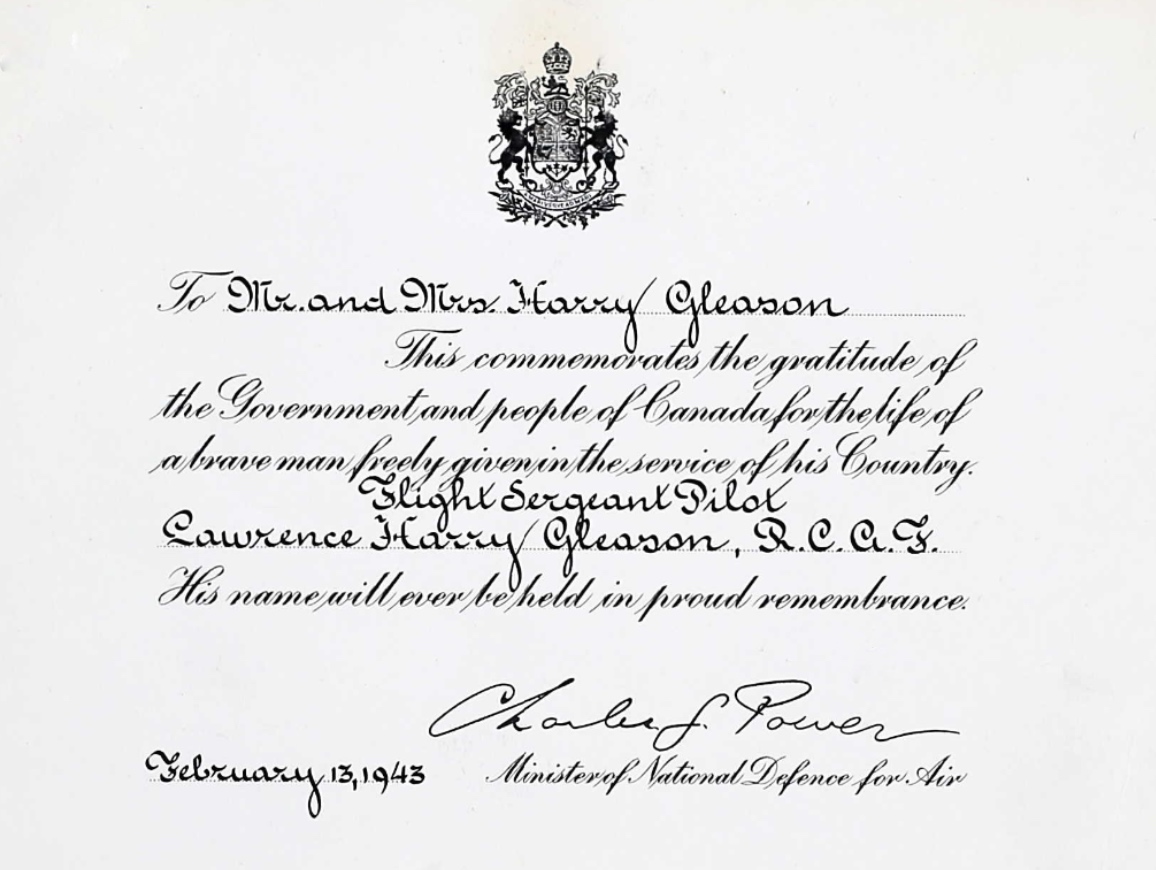 To Mr. and Mrs. Harry Gleason
This commemorates the gratitude of
the Government and people of Canada for the life of
a brave man freely given in the service of his Country.
Flight Sergeant Pilot
Lawrence Harry Gleason, R.C.A.F.
His name will ever be held in proud remembrance.
Charles G. Power
February 13, 1943 Minister of National Defence for Air